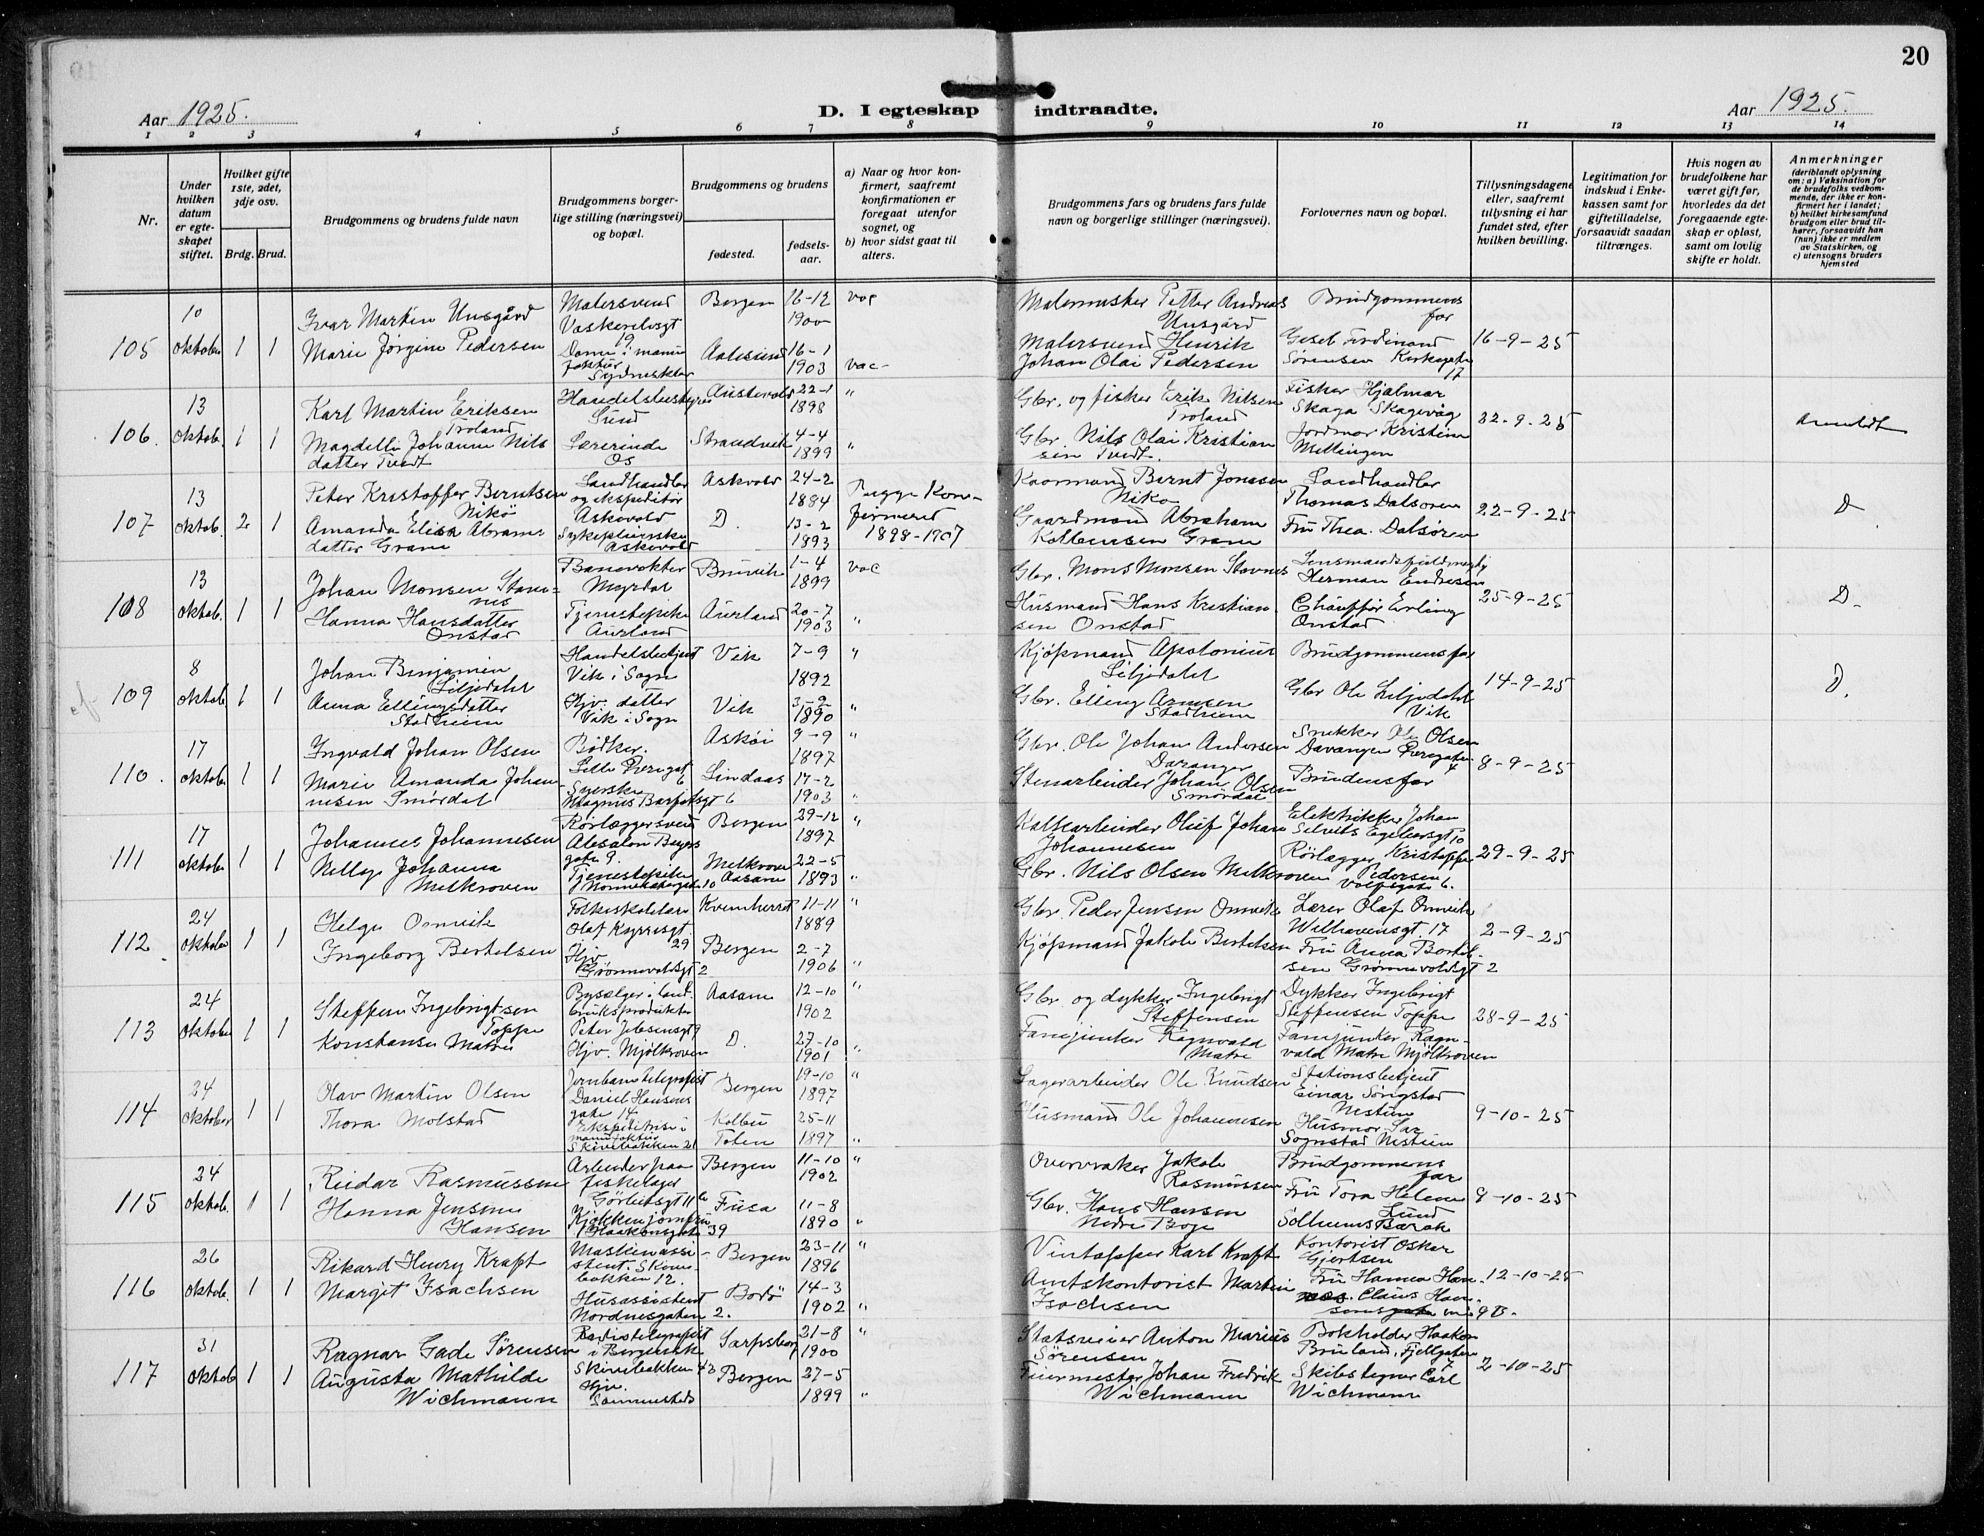 20
Aar 1925.
D. I egteskap indtraadte.
Aar 1925.
1 2 3 4 5 6 7 8 9 10 11 12 13 14
Nr.
Under hvilken datum er egteskapet stiftet.
Hvilket gifte 1ste, 2det, 3dje osv.
Brdg. Brud.
Brudgommens og brudens fulde navn
Brudgommens borgerlige stilling (næringsvei) og bopæl.
Brudgommens og brudens
fødested.
fødselsaar.
a) Naar og hvor konfirmert, saafremt konfirmationen er foregaat utenfor sognet, og
b) hvor sidst gaat til alters.
Brudgommens fars og brudens fars fulde navn og borgerlige stillinger (næringsvei).
Forlovernes navn og bopæl.
Tillysningsdagene eller, saafremt tillysning ei har fundet sted, efter hvilken bevilling.
Legitimation for indskud i Enkekassen samt for giftetilladelse, forsaavidt saadan tiltrænges.
Hvis nogen av brudefolkene har været gift før, hvorledes da det foregaaende egteskap er opløst, samt om lovlig skifte er holdt.
Anmerkninger (deriblandt oplysning om: a) Vaksination for de brudefolks vedkommende, der ikke er konfirmert her i landet; b) hvilket kirkesamfund brudgom eller brud tilhører, forsaavidt han (hun) ikke er medlem av Statskirken, og c) utensogns bruders hjemsted
105 10 oktober 1 1
Ivar Martin Husgård
Marie Jørgine Pedersen
Malersvend
Bergen 16-12 1900 vac
Dame i manufaktur
Aalesund 16-1 1903 vac
Malermester Petter Andreas Husgård
Malersvend Henrik Johan Olai Pedersen
Brudgommens far
Ferdinand Sørensen Kirkegaten 17
16-9-25
106. 13 oktob. 1 1
Karl Martin Eriksen Troland
Magdeli Johanne Nilsdatter Tvedt
Handelsbestyrer Sund
Lærerinde Os
Austevold 22-1 1898 "
Strandvik 4-4 1899 "
Gbr. og fisker Erik Nilsen Troland
Gbr. Nils Olai Kristiansen Tvedt.
Fisker Hjalmar Skaga Skagevåg
Jordmor Kristine Mellingen
22-9-25
107 13 oktob. 2 1
Peter Kristoffer Berntsen Nikø
Amanda Elisa Abramsdatter Gram
Landhandler og ekspeditør Askevold
Sykepleierske Askevold
Askvold 24-2 1884
D. 13-2 1893
Begge Konfirmered 1898-1907
Bernt Jonasen Nikø
Gaardmand Abraham Gram
Landhandler Thomas Dalsøren
Fru Thea Dalsøren
22-9-25
D
108 13 oktob. 1 1
Johan Monsen
Hanna Hansdatter Onstad
Banevokter Myrdal
Tjenestepike Aurland
Bruvik 1-4 1899 vac
Aurland 20-7 1903 "
Gbr. Mons Monsen
Husmand Hans Kristiansen Onstad
Lensmandsfuldmegtig Herman Endresen
Chauffør Erling Onstad
25-9-25
D.
109 8 oktob. 1 1
Johan Benjamin Liljedahl
Anna Ellingsdatter Stadheim
Handelsbetjent Vik i Sogn
Hjv. datter Vik i Sogn
Vik 7-9 1892 "
Vik 3-2 1890 "
Kjøpmand Apolonius Liljedahl
Gbr. Elling Stadheim
Brudgommens far
Gbr Ole Liljedahl Vik
14-9-25
D.
110. 17 oktober 1 1
Ingvald Johan Olsen
Marie Amanda Johannesen Smørdal
Bødker.
Syerske Magnus Barfotsgt 6
Askøi 9-9 1897 "
Lindaas 17-2 1903 "
Gbr. Ole Johan Andersen Davanger
Stenarbeider Johan Olsen Smørdal
Snekker Ole Olsen Davanger
Brudens far
8-9-25
111 17 oktober 1 1
Johannes Johannesen
Nelly Johanna Melkroven
Rørlæggersvend Absalon Beyers gate 9.
Tjenestepike
Bergen 29-12 1897
22-5 1893 "
Oluf Johan Johannesen
Gbr. Nils Olsen Melkroven
Elektriker Johan
Rørlægger Kristoffer Pedersen
29-9-25
112 24 oktober 1 1
Helge Omvik
Ingeborg Bertelsen
Folkeskolelærer Olaf Kyrresgt. 29
Hjv. Grønnevoldsgt 2
Kvinherred 11-11 1889 "
Bergen 2-7 1906 "
Gbr. Peder Jensen Omvik
Kjøpmand Jakob Bertelsen
Lærer Olaf Omvik Welhavensgt. 17
Fru Anna Bertelsen Grønnevoldsgt 2
2-9-25
113 24 oktober 1 1
Steffen Ingebrigtsen Toppe
Konstanse Matre
Peter Jebsensgt 9
Hjv. Mjølkroven
Aasane 12-10 1902 "
D. 27-10 1901 "
Gbr og dykker Ingebrigt Steffensen
Fanejunker Ragnvald Matre
Dykker Ingebrigt Steffensen Toppe
Fanejunker Ragnvald Matre Mjølkroven
28-9-25
114 24 oktober 1 1
Olav Martin Olsen
Thora Molstad
Jernbanetelegrafist Daniel Hansens gate 14
Ekspeditrise i manufaktur Skivebakken 21
Bergen 19-10 1897 "
Kolbu Toten 25-11 1897 "
Lagerarbeider Ole Knudsen
Husmand Ole Johannesen
Stationsbetjent Einar Songstad Nestun
Husmor
9-10-25
115 24 oktob. 1 1
Reidar Rasmussen
Hanna Jensine Hansen
Arbeider paa fiskelager
Kjøkkenjomfru
Bergen 11-10 1902 "
Fusa 11-8 1890 "
Overvraker Jakob Rasmussen
Gbr. Hans Hansen
Brudgommens far
Fru Tora Helene Lund Solheims
9-10-25
116 26 oktob. 1 1
Rikard Henry Kraft
Margit Isachsen
Maskinassistent
Husassistent Nordnesgaten 2.
Bergen 23-11 1896 "
Bodø 14-3 1902 "
Vintapper Karl Kraft
Amtskontorist Martin Isachsen
Kontorist Oskar Gjertsen
Fru Hanna
12-10-25
117 31 oktob 1 1
Ragnar Gade Sørensen
Augusta Mathilde Wichmann
Radiotelegrafist i Bergensk
Skivebakken 43
Hjv. Sammesteds
Sarpsborg 21-8 1900 "
Bergen 27-5 1899 "
Anton Marius Sørensen
Feiermester Johan Fredrik Wichmann
Bokholder Haakon Bruland, Fjellgaten 7
Skibstegner Carl Wichmann
2-10-25